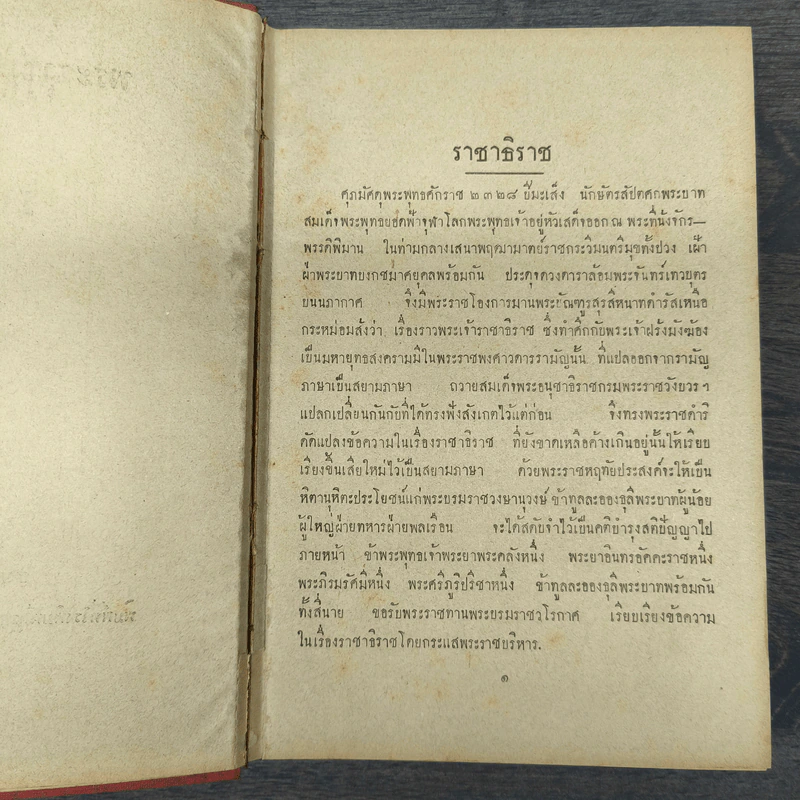 ราชาธิราช
ศุภมัศดุพระพุทธศักราช ๒๓๒๘ ปีมะเส็ง นักษัตรสัปตศกพระบาท
สมเด็จพระพุทธยอดฟ้าจุฬาโลกพระพุทธเจ้าอยู่หัวเสด็จออก ณ พระที่นั่งจักร—
พรรดิพิมาน ในท่ามกลางเสนาพฤฒามาตย์ราชกระวิมนตรีมุขทั้งปวง เฝ้า
ฝ่าพระบาทยงกชมาศยุคลพร้อมกัน ประดุจดวงดาราล้อมพระจันทร์เทวบุตร
บนนภากาศ จึงมีพระราชโองการมานพระบัณฑูรสุรสิหนาทดำรัสเหนือ
กระหม่อมสั่งว่า เรื่องราวพระเจ้าราชาธิราช ซึ่งทำศึกกับพระเจ้าฝรั่งมังฆ้อง
เป็นมหายุทธสงครามมีในพระราชพงศาวดารรามัญนั้น ที่แปลออกจากรามัญ
ภาษาเป็นสยามภาษา ถวายสมเด็จพระอนุชาธิราชกรมพระราชวังบวร ฯ
แปลกเปลี่ยนกันกับที่ได้ทรงฟังสังเกตไว้แต่ก่อน จึงทรงพระราชดำริ
ดัดแปลงข้อความในเรื่องราชาธิราช ที่ยังขาดเหลือค้างเกินอยู่นั้นให้เรียบ
เรียงขึ้นเสียใหม่ไว้เป็นสยามภาษา ด้วยพระราชหฤทัยประสงค์จะให้เป็น
หิตานุหิตะประโยชน์แก่พระบรมราชวงษานุวงษ์ ข้าทูลละอองธุลีพระบาทผู้น้อย
ผู้ใหญ่ฝ่ายทหารฝ่ายพลเรือน จะได้สดับจำไว้เป็นคติบำรุงสติปัญญาไป
ภายหน้า ข้าพระพุทธเจ้าพระยาพระคลังหนึ่ง พระยาอินทรอัคคะราชหนึ่ง
พระภิรมรัศมีหนึ่ง พระศรีภูริปรีชาหนึ่ง ข้าทูลละอองธุลีพระบาทพร้อมกัน
ทั้งสี่นาย ขอรับพระราชทานพระบรมราชวโรกาศ เรียบเรียงข้อความ
ในเรื่องราชาธิราชโดยกระแสพระราชบริหาร.
๑